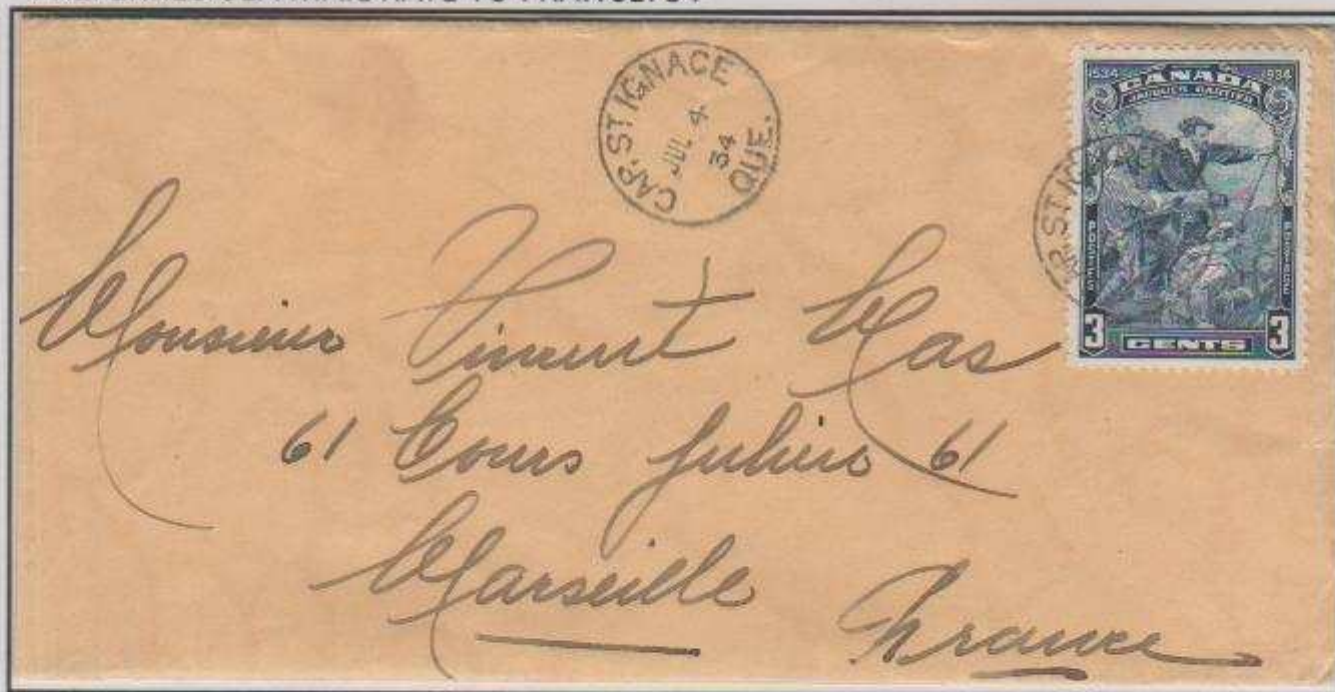 TO FRANCE.
CAP. ST IGNACE
JUL 4
34
QUE.
1534 1934
CANADA
JACQUES CARTIER
3 CENTS 3
Monsieur Vincent Mas
61 Cours Julien 61
Marseille
France